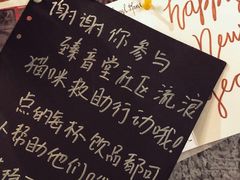 谢谢你参与
臻音堂社区流浪
猫咪救助行动哦!
点的每杯饮品都可
人帮助他们
happy
New